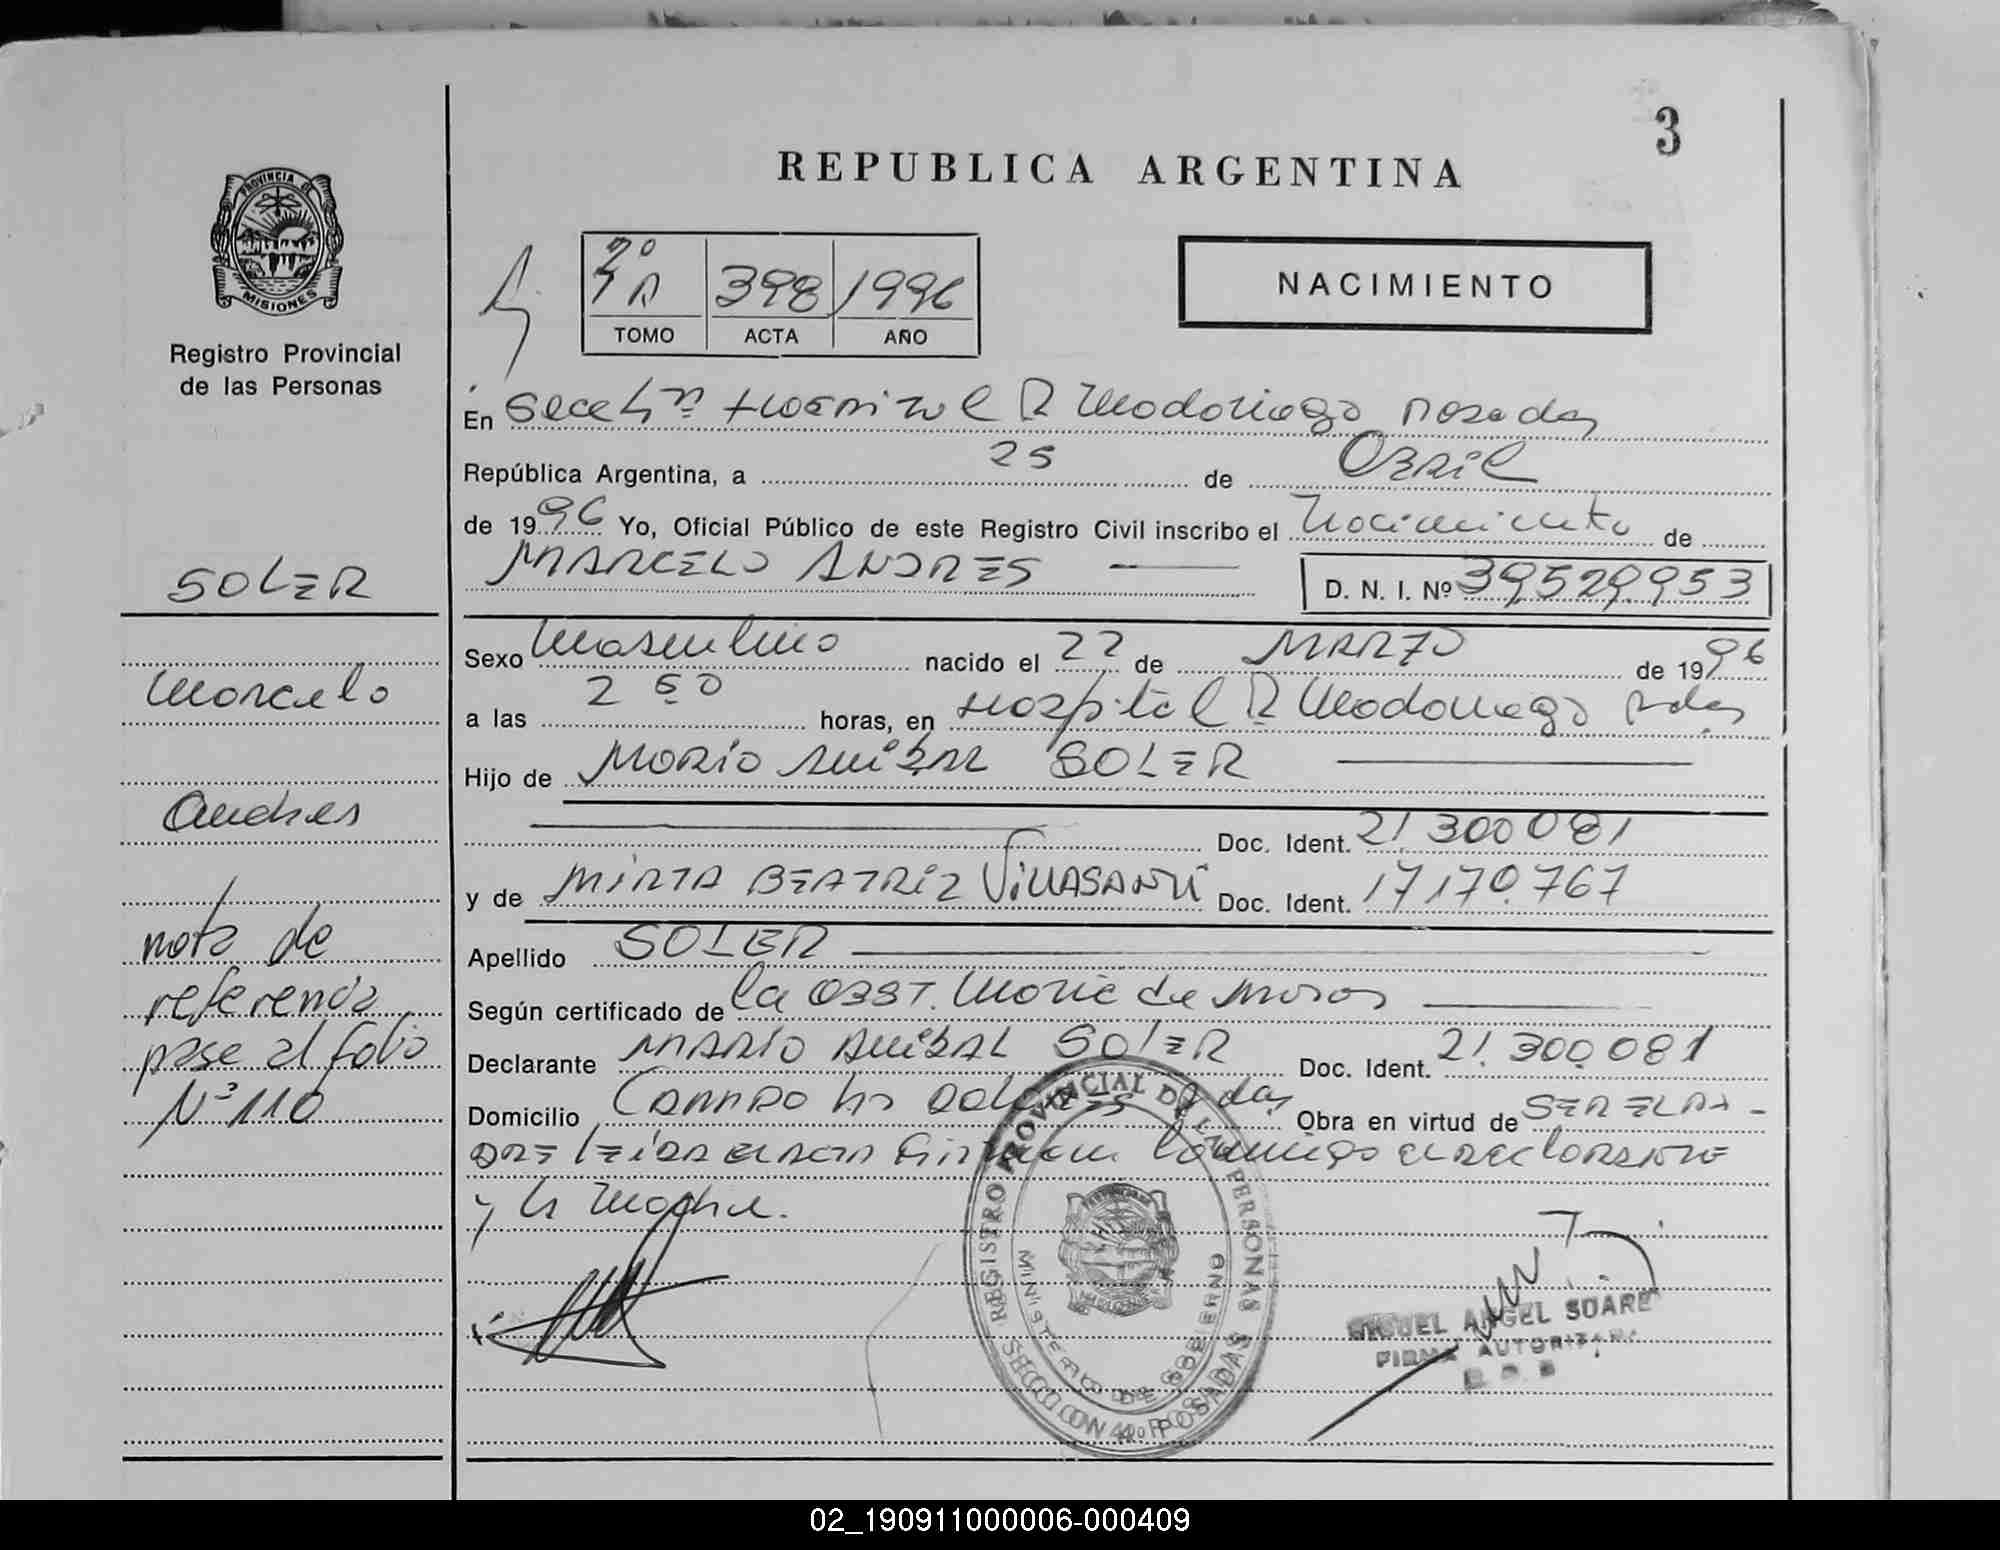 3
REPUBLICA ARGENTINA
PROVINCIA DE
MISIONES
Registro Provincial
de las Personas
2º
A 398 1996
TOMO ACTA AÑO
NACIMIENTO
En Secc 4ª Hospital R Madariaga Posadas
República Argentina, a 25 de Abril
de 1996 Yo, Oficial Público de este Registro Civil inscribo el Nacimiento de
MARCELO ANDRES D. N. I. Nº 39529953
Sexo Masculino nacido el 22 de MARZO de 1996
a las 2 50 horas, en Hospital R Madariaga Pdas
Hijo de MARIO ANIBAL SOLER
Doc. Ident. 21.300.081
y de MIRTA BEATRIZ VILLASANTI Doc. Ident. 17170.767
Apellido SOLER
Según certificado de la OBST. Maria de
Declarante MARIO ANIBAL SOLER Doc. Ident. 21.300.081
Domicilio Pdas Obra en virtud de SER EL PA-
DRE Leida el acta firman conmigo el declarante
y la madre.
SOLER
Marcelo
Andres
nota de
referencia
pase al folio
Nº 110
REGISTRO PROVINCIAL DE LAS PERSONAS
MINISTERIO DE GOBIERNO
SECCION 4º POSADAS
MIGUEL ANGEL SUARE
FIRMA AUTORIZADA
02_190911000006-000409